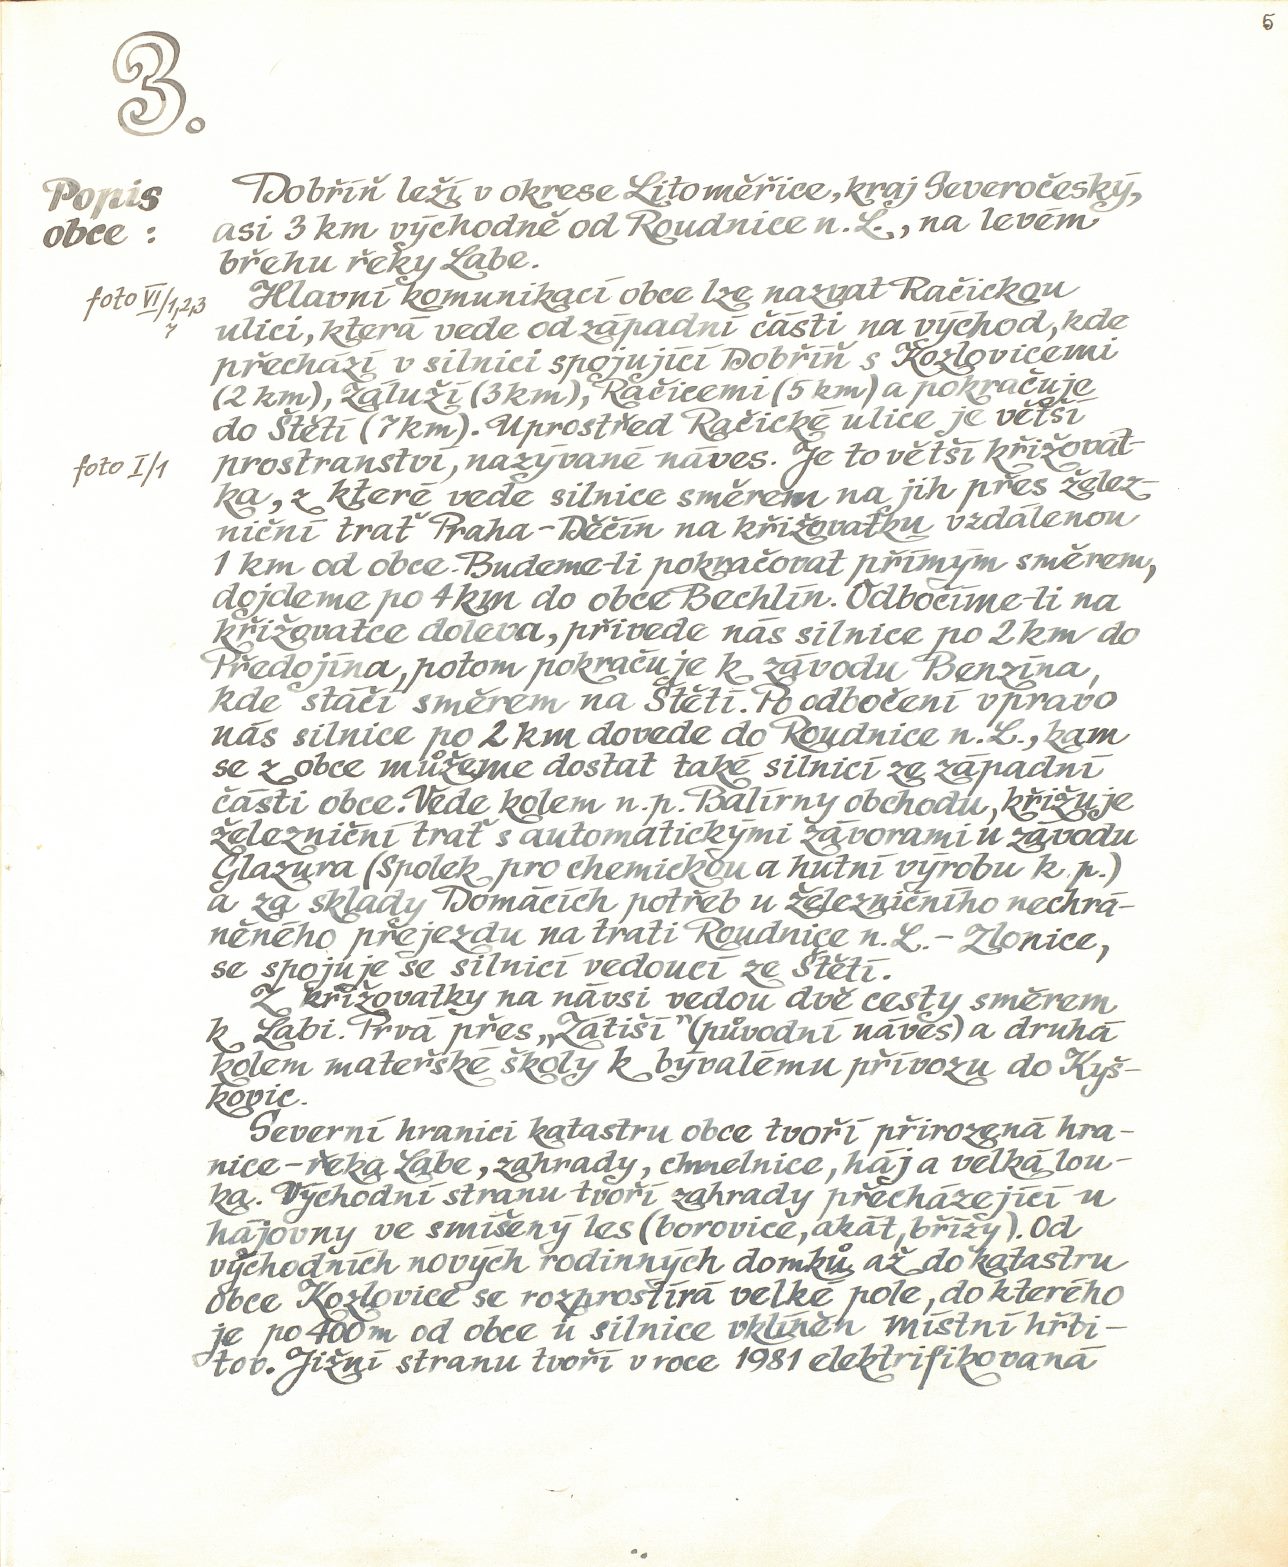 5
3.
Popis
obce :
Dobříň leží v okrese Litoměřice, kraj Severočeský,
asi 3 km východně od Roudnice n. L., na levém
břehu řeky Labe.
foto VI/1,2,3
7
Hlavní komunikací obce lze nazvat Račickou
ulici, která vede od západní části na východ, kde
přechází v silnici spojující Dobříň s Kozlovicemi
(2 km), Záluží (3 km), Račicemi (5 km) a pokračuje
do Štětí (7 km). Uprostřed Račické ulice je větší
foto I/1
prostranství, nazývané náves. Je to větší křižovat-
ka, z které vede silnice směrem na jih přes želez-
niční trať Praha - Děčín na křižovatku vzdálenou
1 km od obce. Budeme-li pokračovat přímým směrem,
dojdeme po 4 km do obce Bechlín. Odbočíme-li na
křižovatce doleva, přivede nás silnice po 2 km do
Předojína, potom pokračuje k závodu Benzina,
kde stáčí směrem na Štětí. Po odbočení vpravo
nás silnice po 2 km dovede do Roudnice n. L., kam
se z obce můžeme dostat také silnicí ze západní
části obce. Vede kolem n. p. Balírny obchodu, křižuje
železniční trať s automatickými závorami u závodu
Glazura (Spolek pro chemickou a hutní výrobu k. p.)
a za sklady Domácích potřeb u železničního nechrá-
něného přejezdu na trati Roudnice n. L. - Zlonice,
se spojuje se silnicí vedoucí ze Štětí.
Z křižovatky na návsi vedou dvě cesty směrem
k Labi. Prvá přes „Zátiší" (původní náves) a druhá
kolem mateřské školy k bývalému přívozu do Kyš-
kovic.
Severní hranici katastru obce tvoří přirozená hra-
nice - řeka Labe, zahrady, chmelnice, háj a velká lou-
ka. Východní stranu tvoří zahrady přecházející u
hájovny ve smíšený les (borovice, akát, břízy). Od
východních nových rodinných domků až do katastru
obce Kozlovice se rozprostírá velké pole, do kterého
je po 400 m od obce u silnice vklíněn místní hřbi-
tov. Jižní stranu tvoří v roce 1981 elektrifikovaná